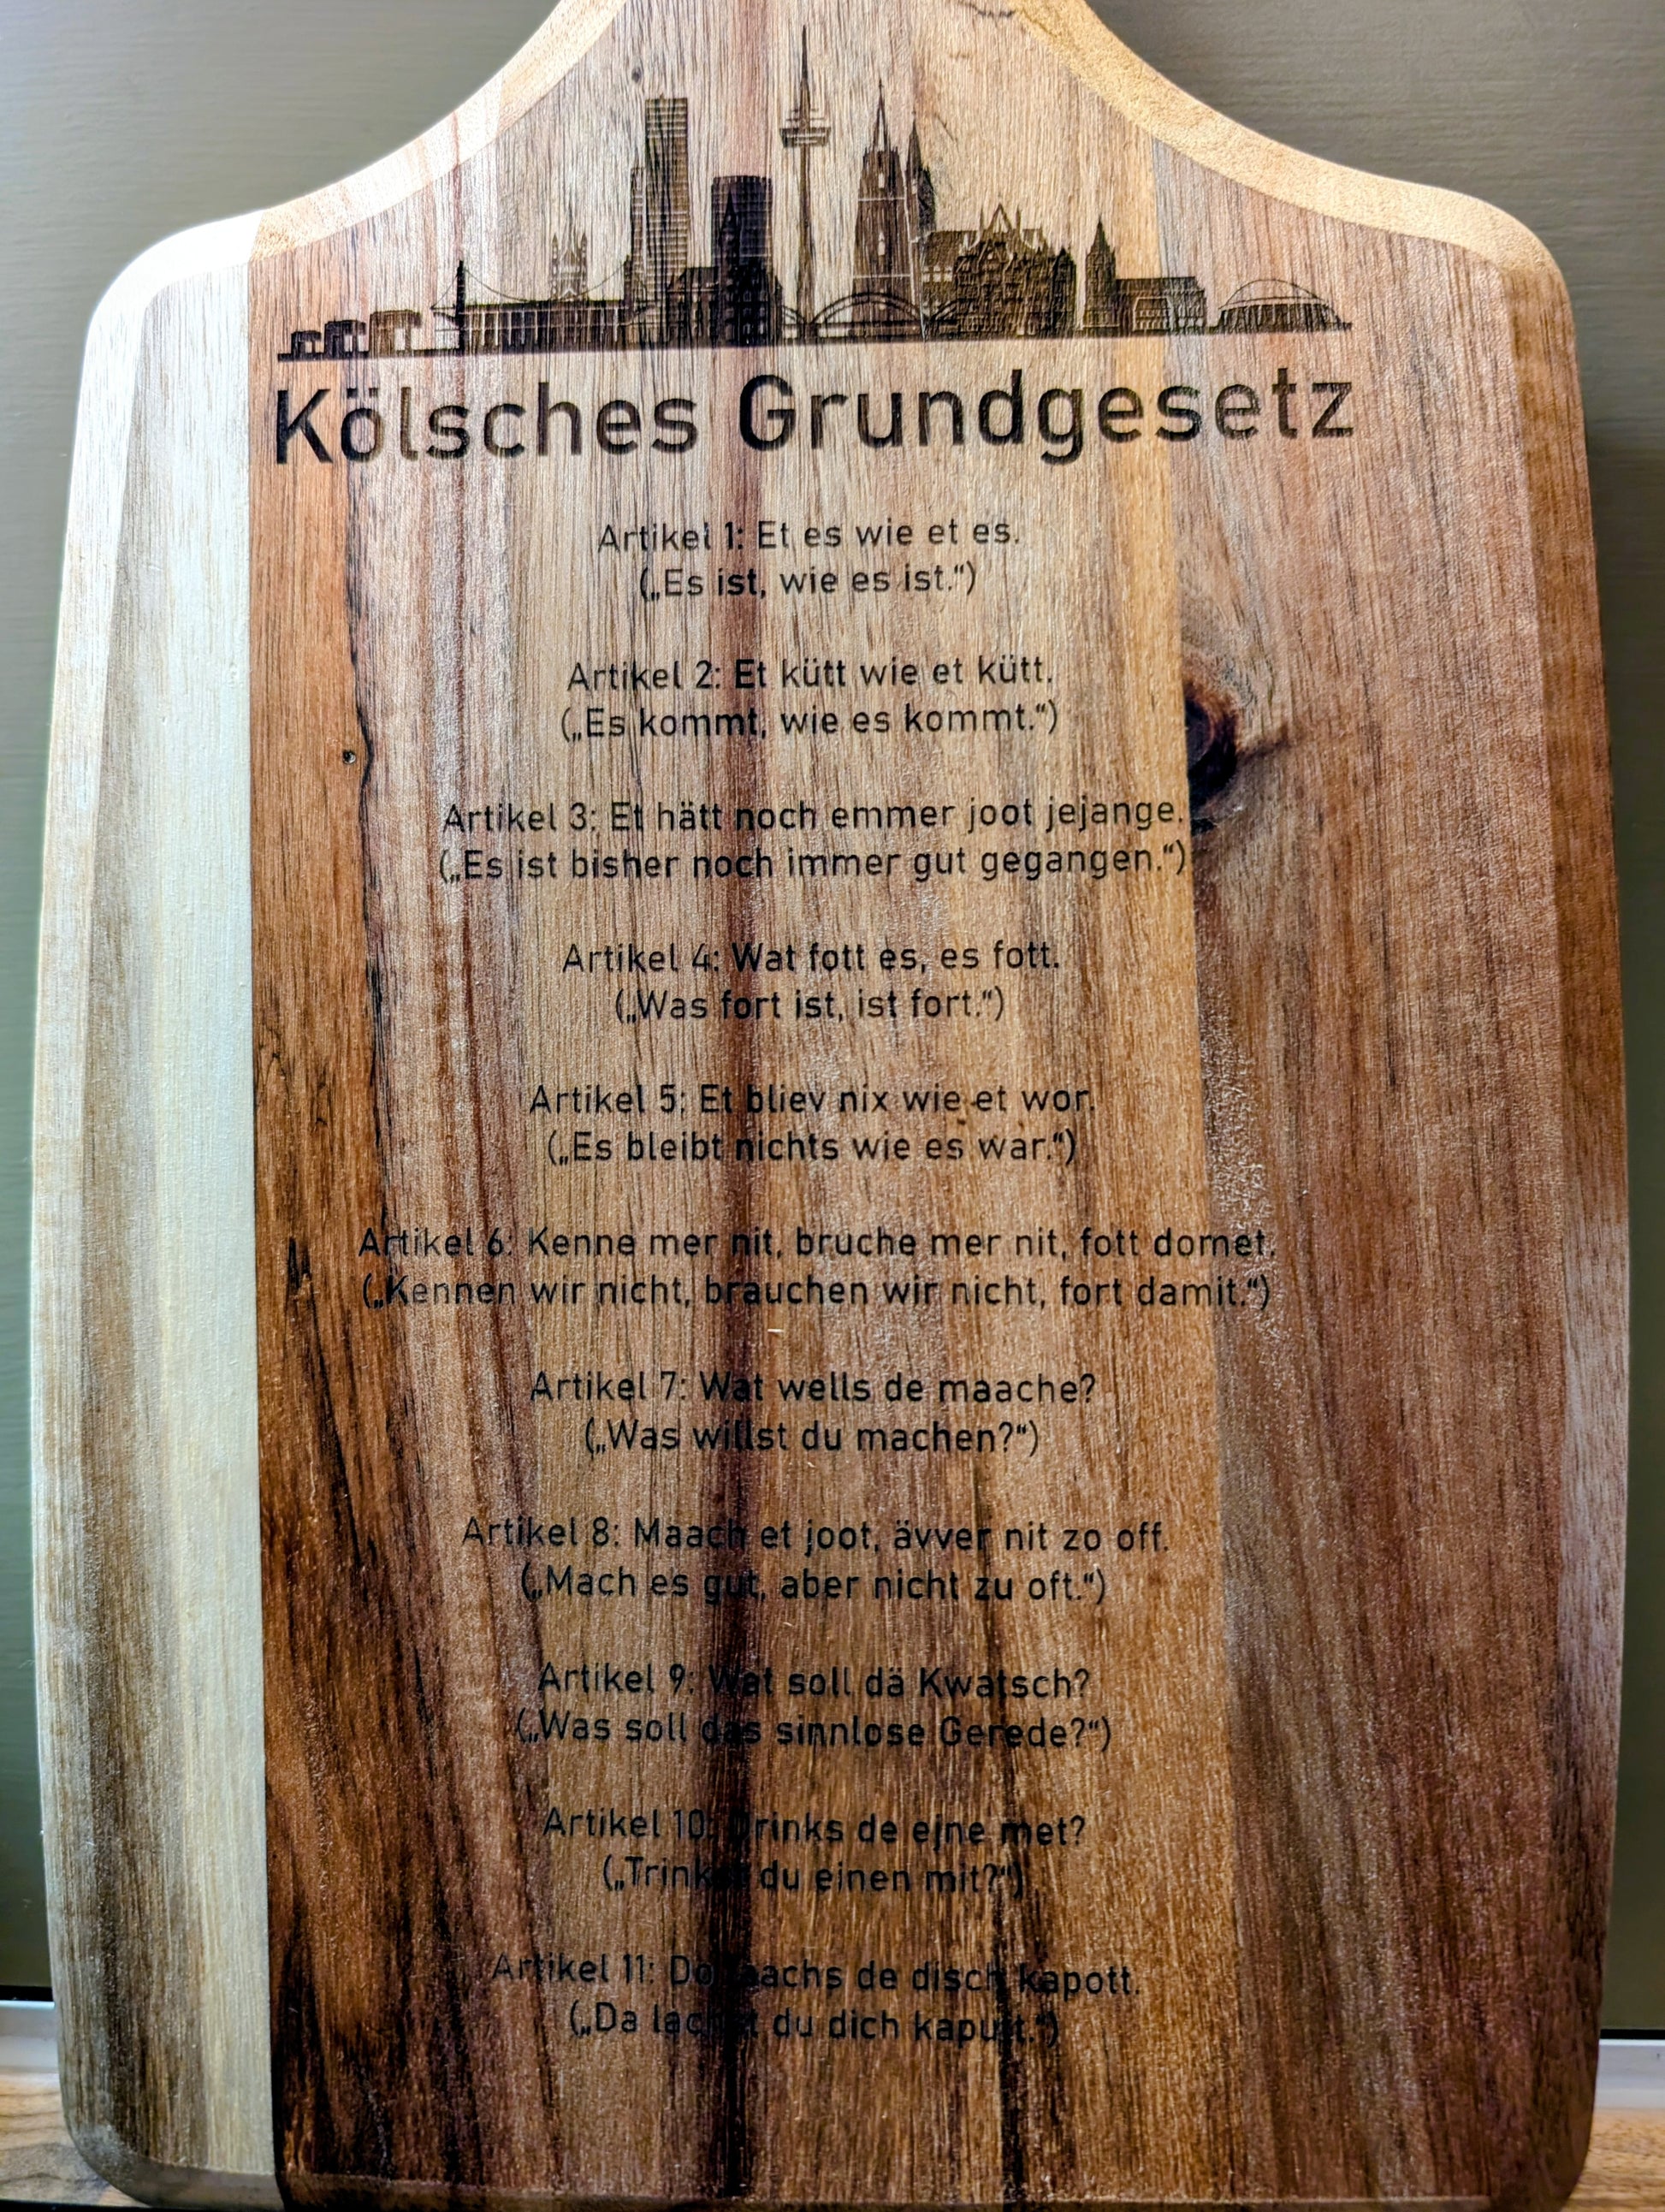 Kölsches Grundgesetz
Artikel 1: Et es wie et es.
(„Es ist, wie es ist.“)
Artikel 2: Et kütt wie et kütt.
(„Es kommt, wie es kommt.“)
Artikel 3: Et hätt noch emmer joot jejange.
(„Es ist bisher noch immer gut gegangen.“)
Artikel 4: Wat fott es, es fott.
(„Was fort ist, ist fort.“)
Artikel 5: Et bliev nix wie et wor.
(„Es bleibt nichts wie es war.“)
Artikel 6: Kenne mer nit, bruche mer nit, fott domet.
(„Kennen wir nicht, brauchen wir nicht, fort damit.“)
Artikel 7: Wat wells de maache?
(„Was willst du machen?“)
Artikel 8: Maach et joot, ävver nit zo off.
(„Mach es gut, aber nicht zu oft.“)
Artikel 9: Wat soll dä Kwatsch?
(„Was soll das sinnlose Gerede?“)
Artikel 10: Drinks de ejne met?
(„Trinkst du einen mit?“)
Artikel 11: Do laachs de disch kapott.
(„Da lachst du dich kaputt.“)